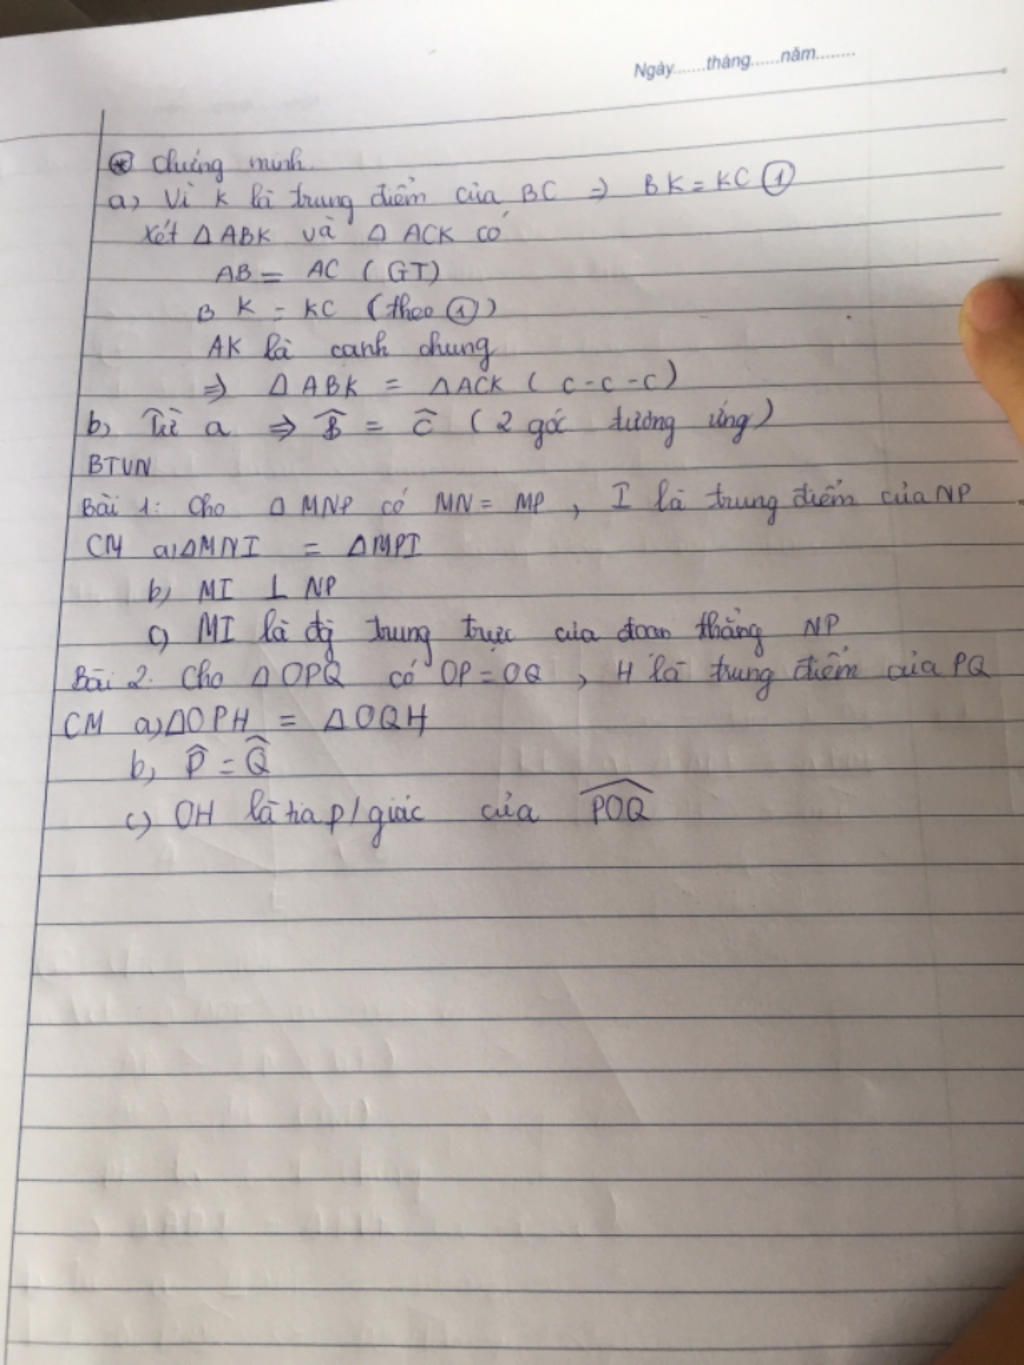 Ngày.......tháng......năm.........
* Chứng minh
a, Vì K là trung điểm của BC ⇒ BK = KC ①
Xét Δ ABK và Δ ACK có
AB = AC (GT)
BK = KC (theo ①)
AK là cạnh chung
⇒ Δ ABK = Δ ACK (c-c-c)
b, Từ a ⇒ B̂ = Ĉ (2 góc tương ứng)
BTVN
Bài 1: Cho Δ MNP có MN = MP, I là trung điểm của NP
CM a, Δ MNI = Δ MPI
b, MI ⊥ NP
c) MI là đg trung trực của đoan thẳng NP
Bài 2. Cho Δ OPQ có OP = OQ, H là trung điểm của PQ
CM a, Δ OPH = Δ OQH
b, P̂ = Q̂
c) OH là tia p/giác của POQ̂